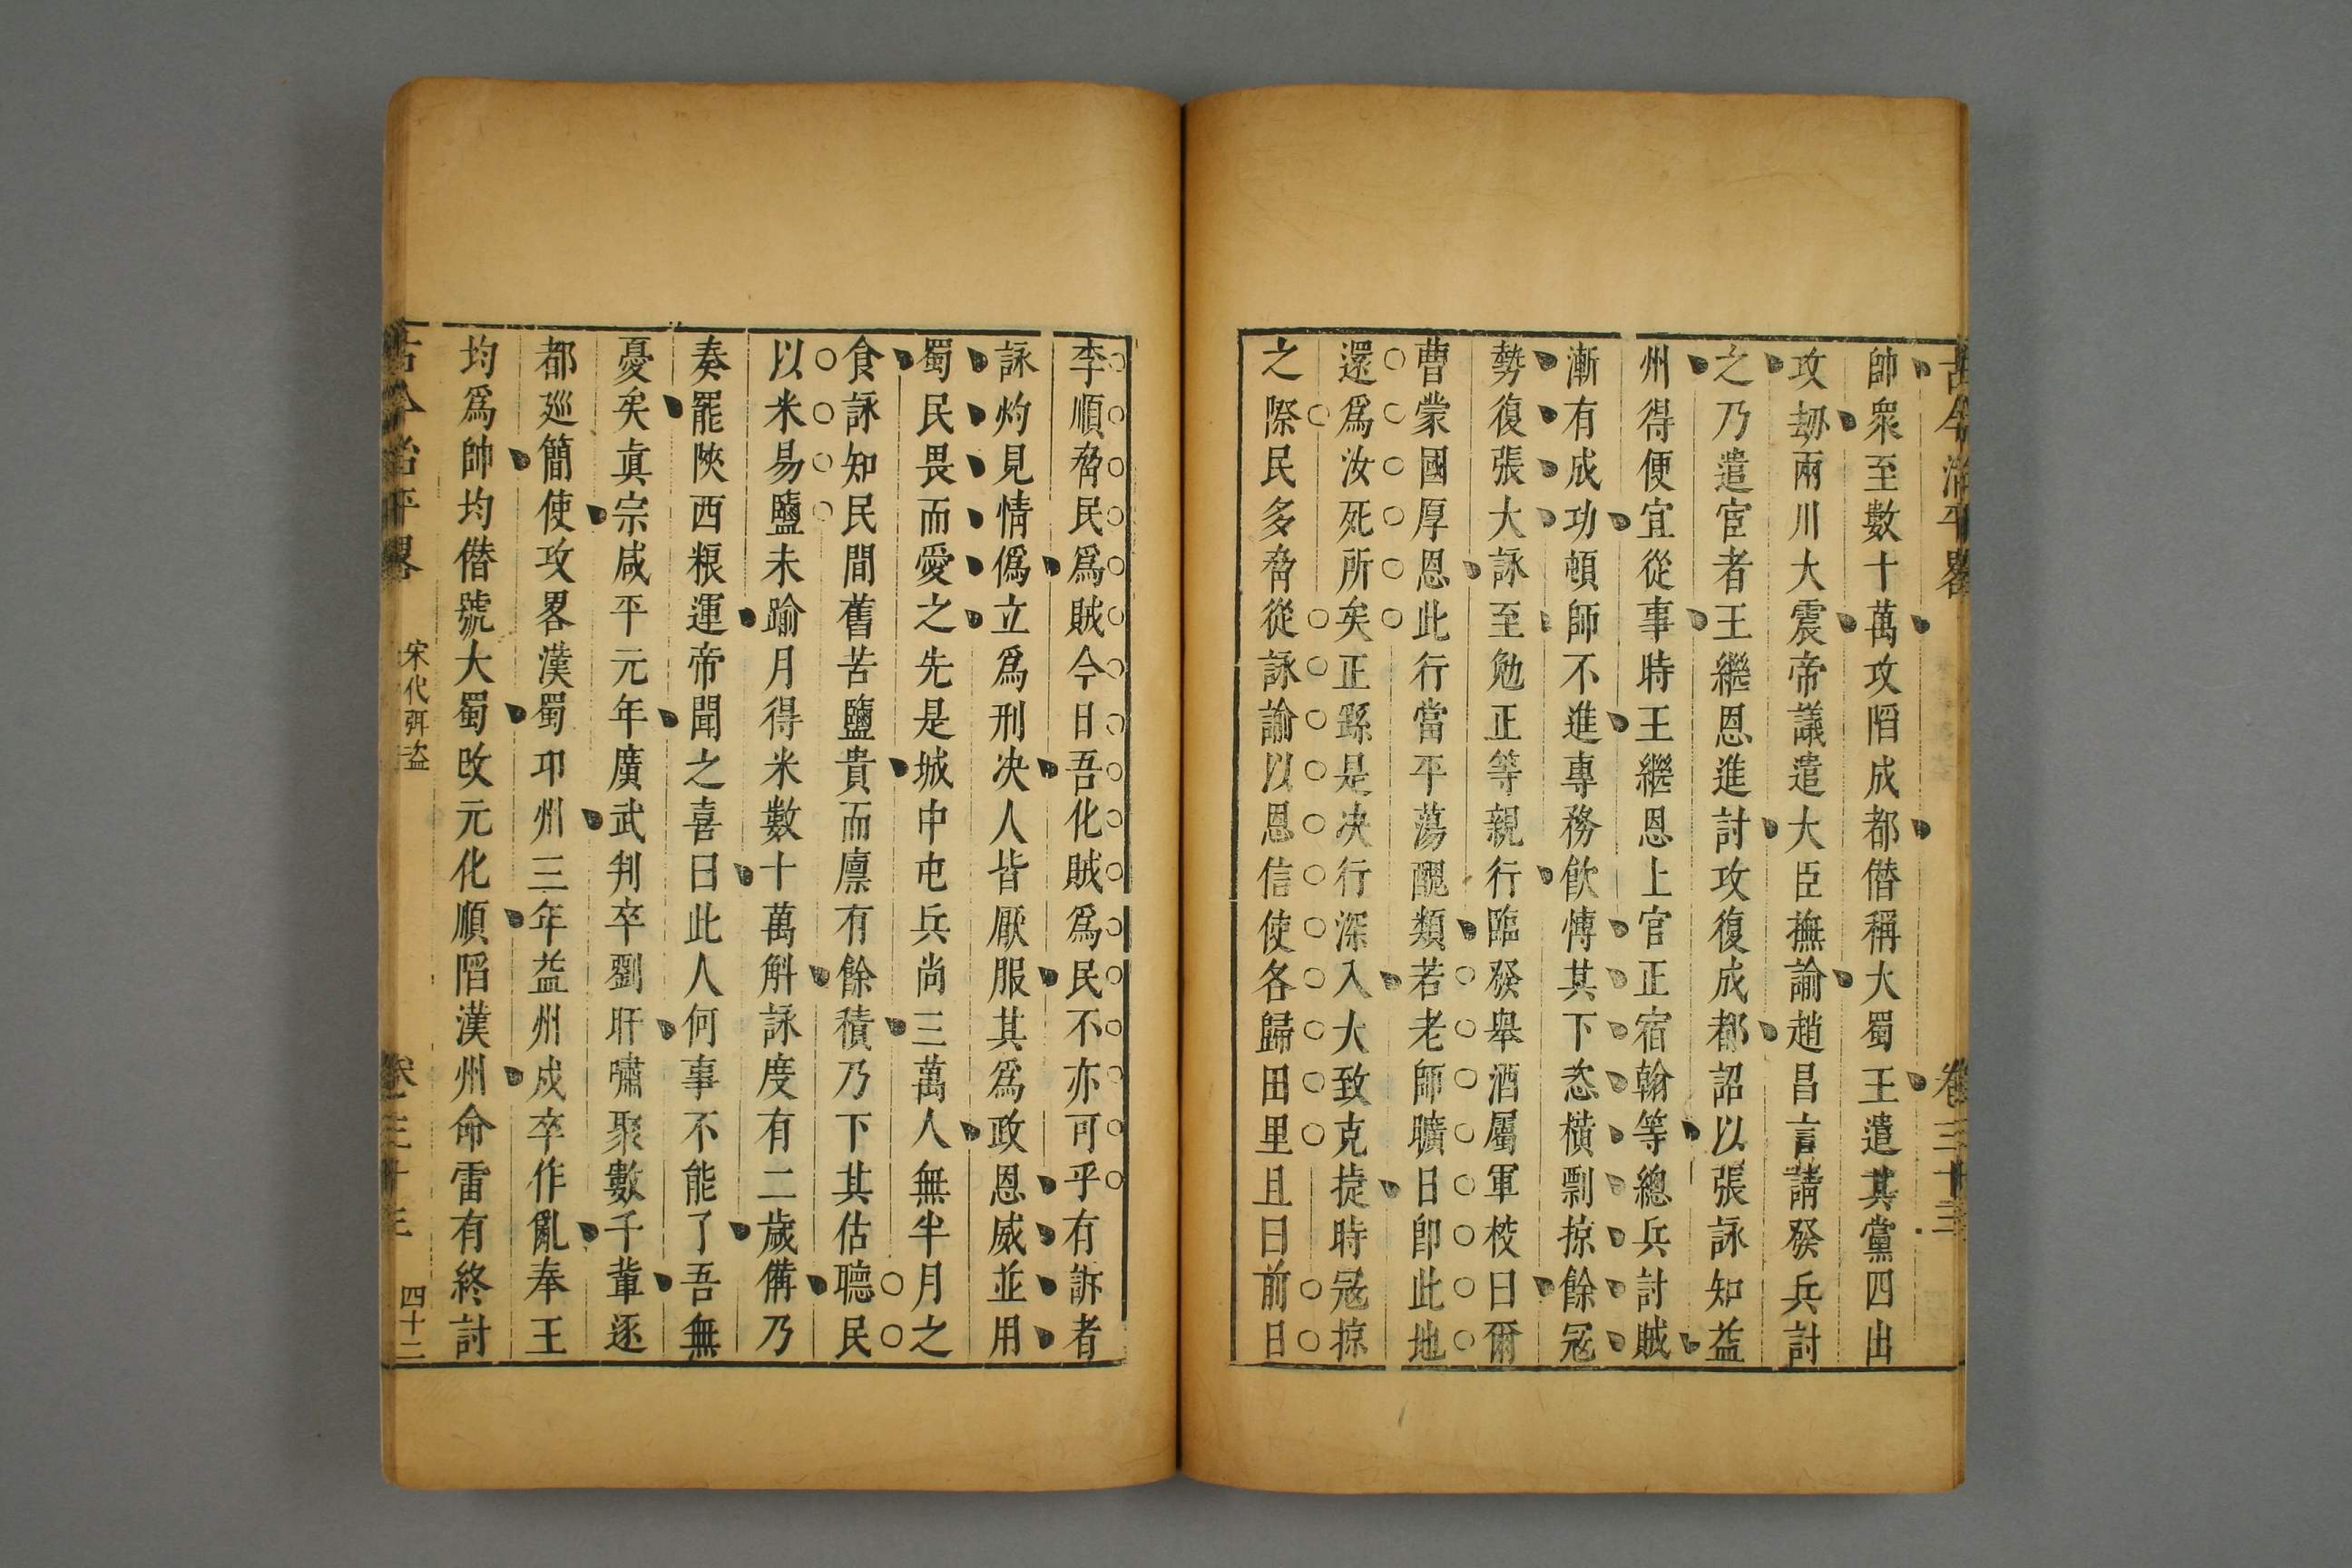 古今治平畧 卷三十三
帥衆至數十萬攻陷成都僭稱大蜀王遣其黨四出
攻刼兩川大震帝議遣大臣撫諭趙昌言請發兵討
之乃遣宦者王繼恩進討攻復成都詔以張詠知益
州得便宜從事時王繼恩上官正宿翰等總兵討賊
漸有成功頓師不進專務飲愽其下恣橫剽掠餘冦
勢復張大詠至勉正等親行臨發舉酒屬軍校曰爾
曹蒙國厚恩此行當平蕩醜類若老師曠日卽此地
還爲汝死所矣正繇是决行深入大致克捷時冦掠
之際民多脅從詠諭以恩信使各歸田里且曰前日
李順脅民爲賊今日吾化賊爲民不亦可乎有訴者
詠灼見情僞立爲刑决人皆厭服其爲政恩威並用
蜀民畏而愛之先是城中屯兵尚三萬人無半月之
食詠知民間舊苦鹽貴而廩有餘積乃下其估聽民
以米易鹽未踰月得米數十萬斛詠度有二歲備乃
奏罷陜西粮運帝聞之喜曰此人何事不能了吾無
憂矣眞宗咸平元年廣武判卒劉旰嘯聚數千輩逐
都廵簡使攻畧漢蜀卭州三年益州戍卒作亂奉王
均爲帥均僭號大蜀改元化順陷漢州命雷有終討
古今治平畧 宋代弭盗 卷三十三 四十二